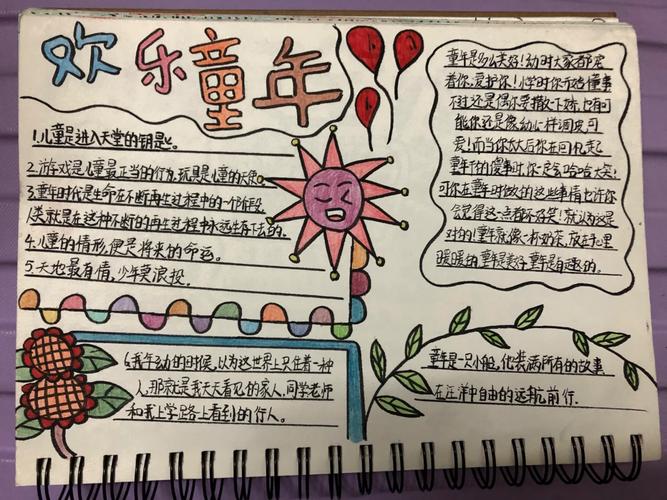 欢乐童年
1.儿童是进入天堂的钥匙。
2.游戏是儿童最正当的行为,玩具是儿童的天使。
3.童年时代是生命在不断再生过程中的一个阶段,
人类就是在这种不断的再生过程中永远生存下去的。
4.儿童的情形,便是将来的命运。
5.天地最有情,少年莫浪投。
童年是多么美好!幼时大家都宠
着你,爱护你!小学时你开始懂事
不过还是偶尔要撒一下娇,也有可
能你还是像幼儿一样调皮可
爱!而当你长大后你在回忆起
童年干的傻事时你一定会哈哈大笑!
可你在童年时做的这些事情也许你
会觉得这一点都不好笑!就认为这是
对的!童年就像一杯奶茶,放在手心里
暖暖的,童年是美好,童年是有趣的。
6.我年幼的时候,以为这世界上只住着一种
人,那就是我天天看见的家人,同学老师
和我上学路上看到的行人。
童年是一只小船,他载满所有的故事
在汪洋中自由的远航前行.